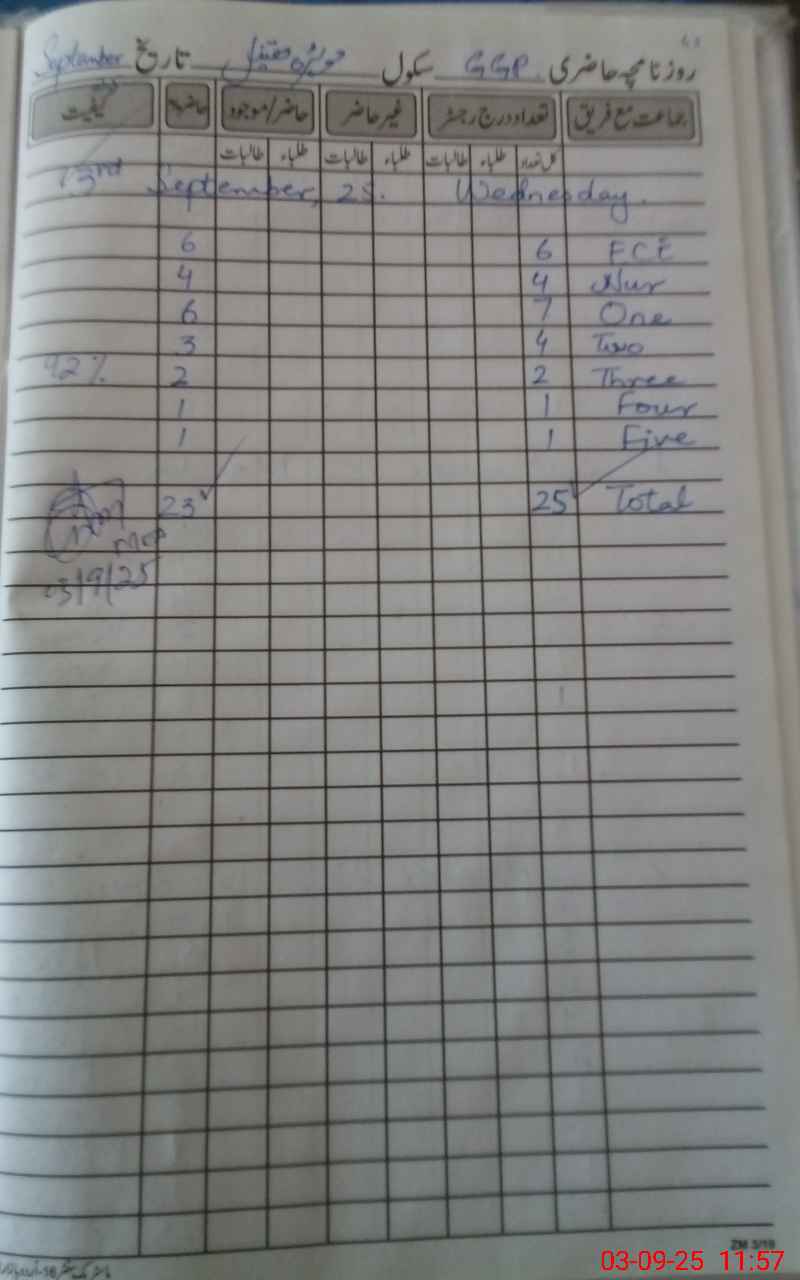 روزنامچہ حاضری سکول GGP تاریخ September
جماعت مع فریق تعداد درج رجسٹر غیر حاضر حاضر/موجود کیفیت
کل تعداد طلباء طالبات طلباء طالبات طلباء طالبات
3rd September, 25. Wednesday.
6 6 ECE
4 4 Nur
6 7 One
3 4 Two
92% 2 2 Three
1 1 Four
1 1 Five
23 25 Total
03/9/25
ZM 3/19
03-09-25 11:57